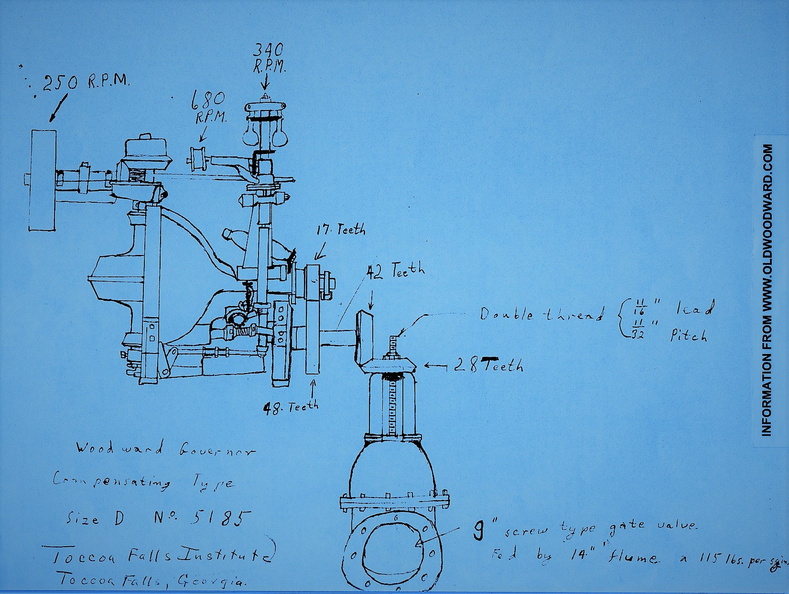 340
R.P.M.
250 R.P.M.
680
R.P.M.
17. Teeth
42 Teeth
Double thread { 11/16" lead
11/32" Pitch
28 Teeth
48. Teeth
Woodward Governor
Compensating Type
Size D No. 5185
Toccoa Falls Institute
Toccoa Falls, Georgia.
9" screw type gate valve.
Fed by "14" flume 115 lbs. per
INFORMATION FROM WWW.OLDWOODWARD.COM